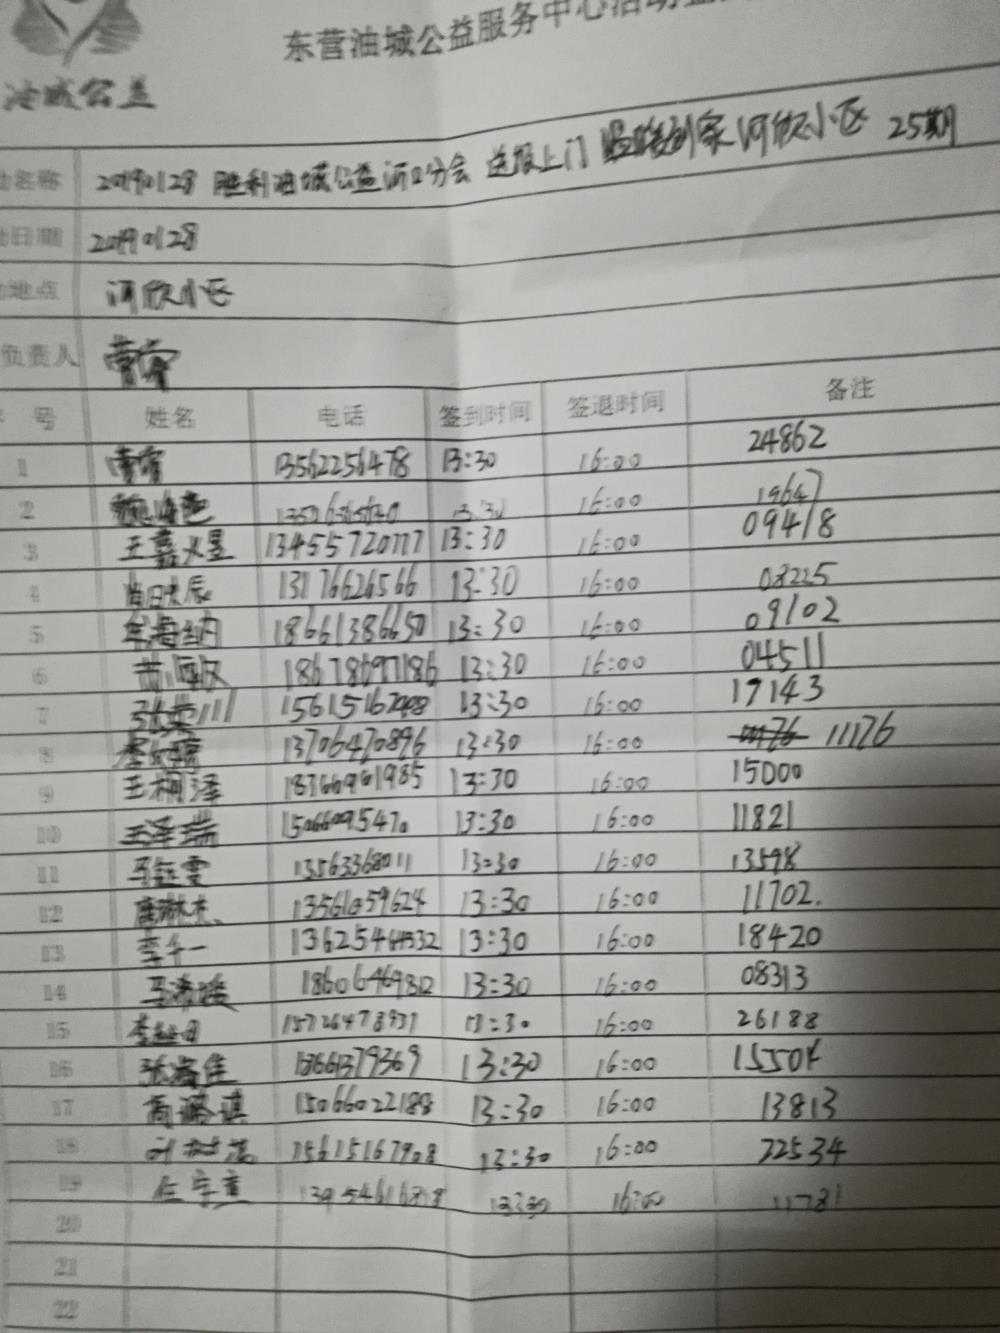 东营油城公益服务中心活动
油城公益
名称 20190128 胜利油城公益河口分会 送报上门 温暖到家 河欣小区 25期
日期 20190128
地点 河欣小区
负责人
号 姓名 电话 签到时间 签退时间 备注
1 13562256478 13:30 16:00 24862
2 16:00 19647
3 王嘉煜 13455720777 13:30 16:00 09418
4 13176626566 13:30 16:00 08225
5 18661386650 13:30 16:00 09102
6 18678697186 13:30 16:00 04511
7 13:30 16:00 17143
8 13706470896 13:30 16:00 11176
9 王桐泽 18366901985 13:30 16:00 15000
10 王泽瑞 15066095470 13:30 16:00 11821
11 马钰雯 13563368011 13:30 16:00 13598
12 13561059624 13:30 16:00 11702.
13 李午一 13:30 16:00 18420
14 13:30 16:00 08313
15 13:30 16:00 26188
16 18661379369 13:30 16:00 15504
17 商璐琪 15066022188 13:30 16:00 13813
18 15615167908 13:30 16:00 22534
19 任宇童 13:30 16:00 11781
20
21
22